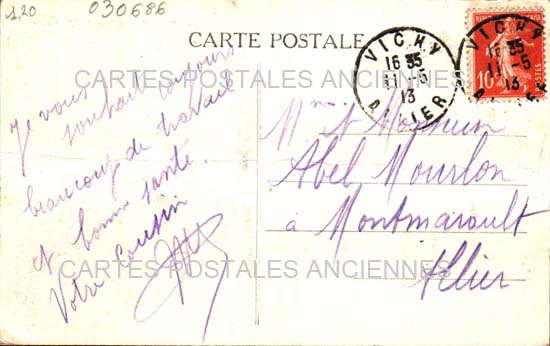 1,20
030686
CARTE POSTALE
VICHY
16 35
11-5
13
ALLIER
VICHY
16 35
11-5
13
10
POSTES
CARTES POSTALES ANCIENNES
Je vous
souhaite toujours
beaucoup de travail
et bonne santé.
Votre cousin
Mme et Monsieur
Abel Mourlon
à Montmarault
Allier
CARTES POSTALES ANCIENNES